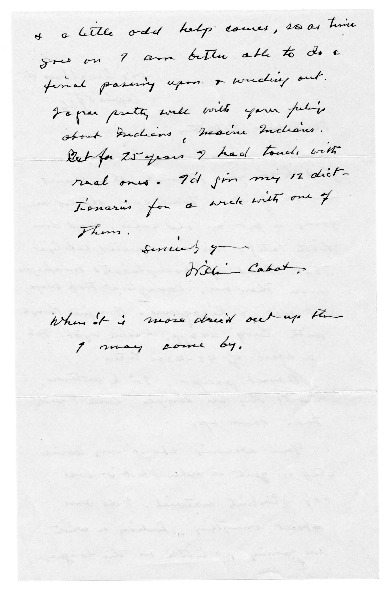 & a little odd help comes, so as time
goes on I am better able to do a
final passing upon & weeding out.
I agree pretty well with your
about Indians, Maine Indians.
But for 25 years I had touch with
real ones. I'd give my 12 dict-
ionaries for a week with one of
them.
Sincerely yours
William Cabot.
When it is more dried out up there
I may come by.